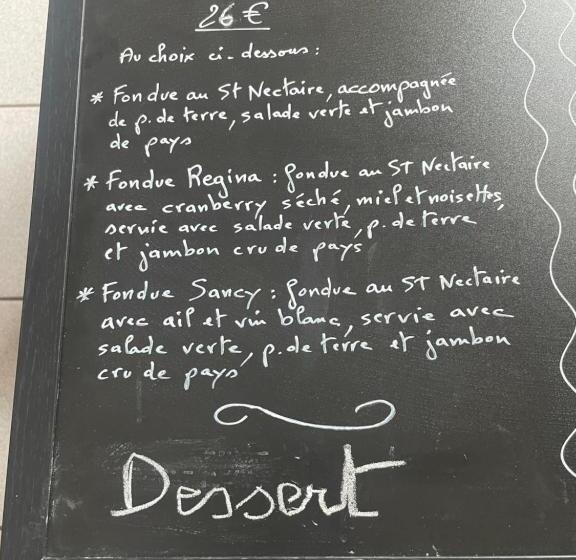 26 €
Au choix ci-dessous :
* Fondue au St Nectaire, accompagnée
de p. de terre, salade verte et jambon
de pays
* Fondue Regina : fondue au ST Nectaire
avec cranberry séché, miel et noisettes,
servie avec salade verte, p. de terre
et jambon cru de pays
* Fondue Sancy : fondue au ST Nectaire
avec ail et vin blanc, servie avec
salade verte, p. de terre et jambon
cru de pays
Dessert